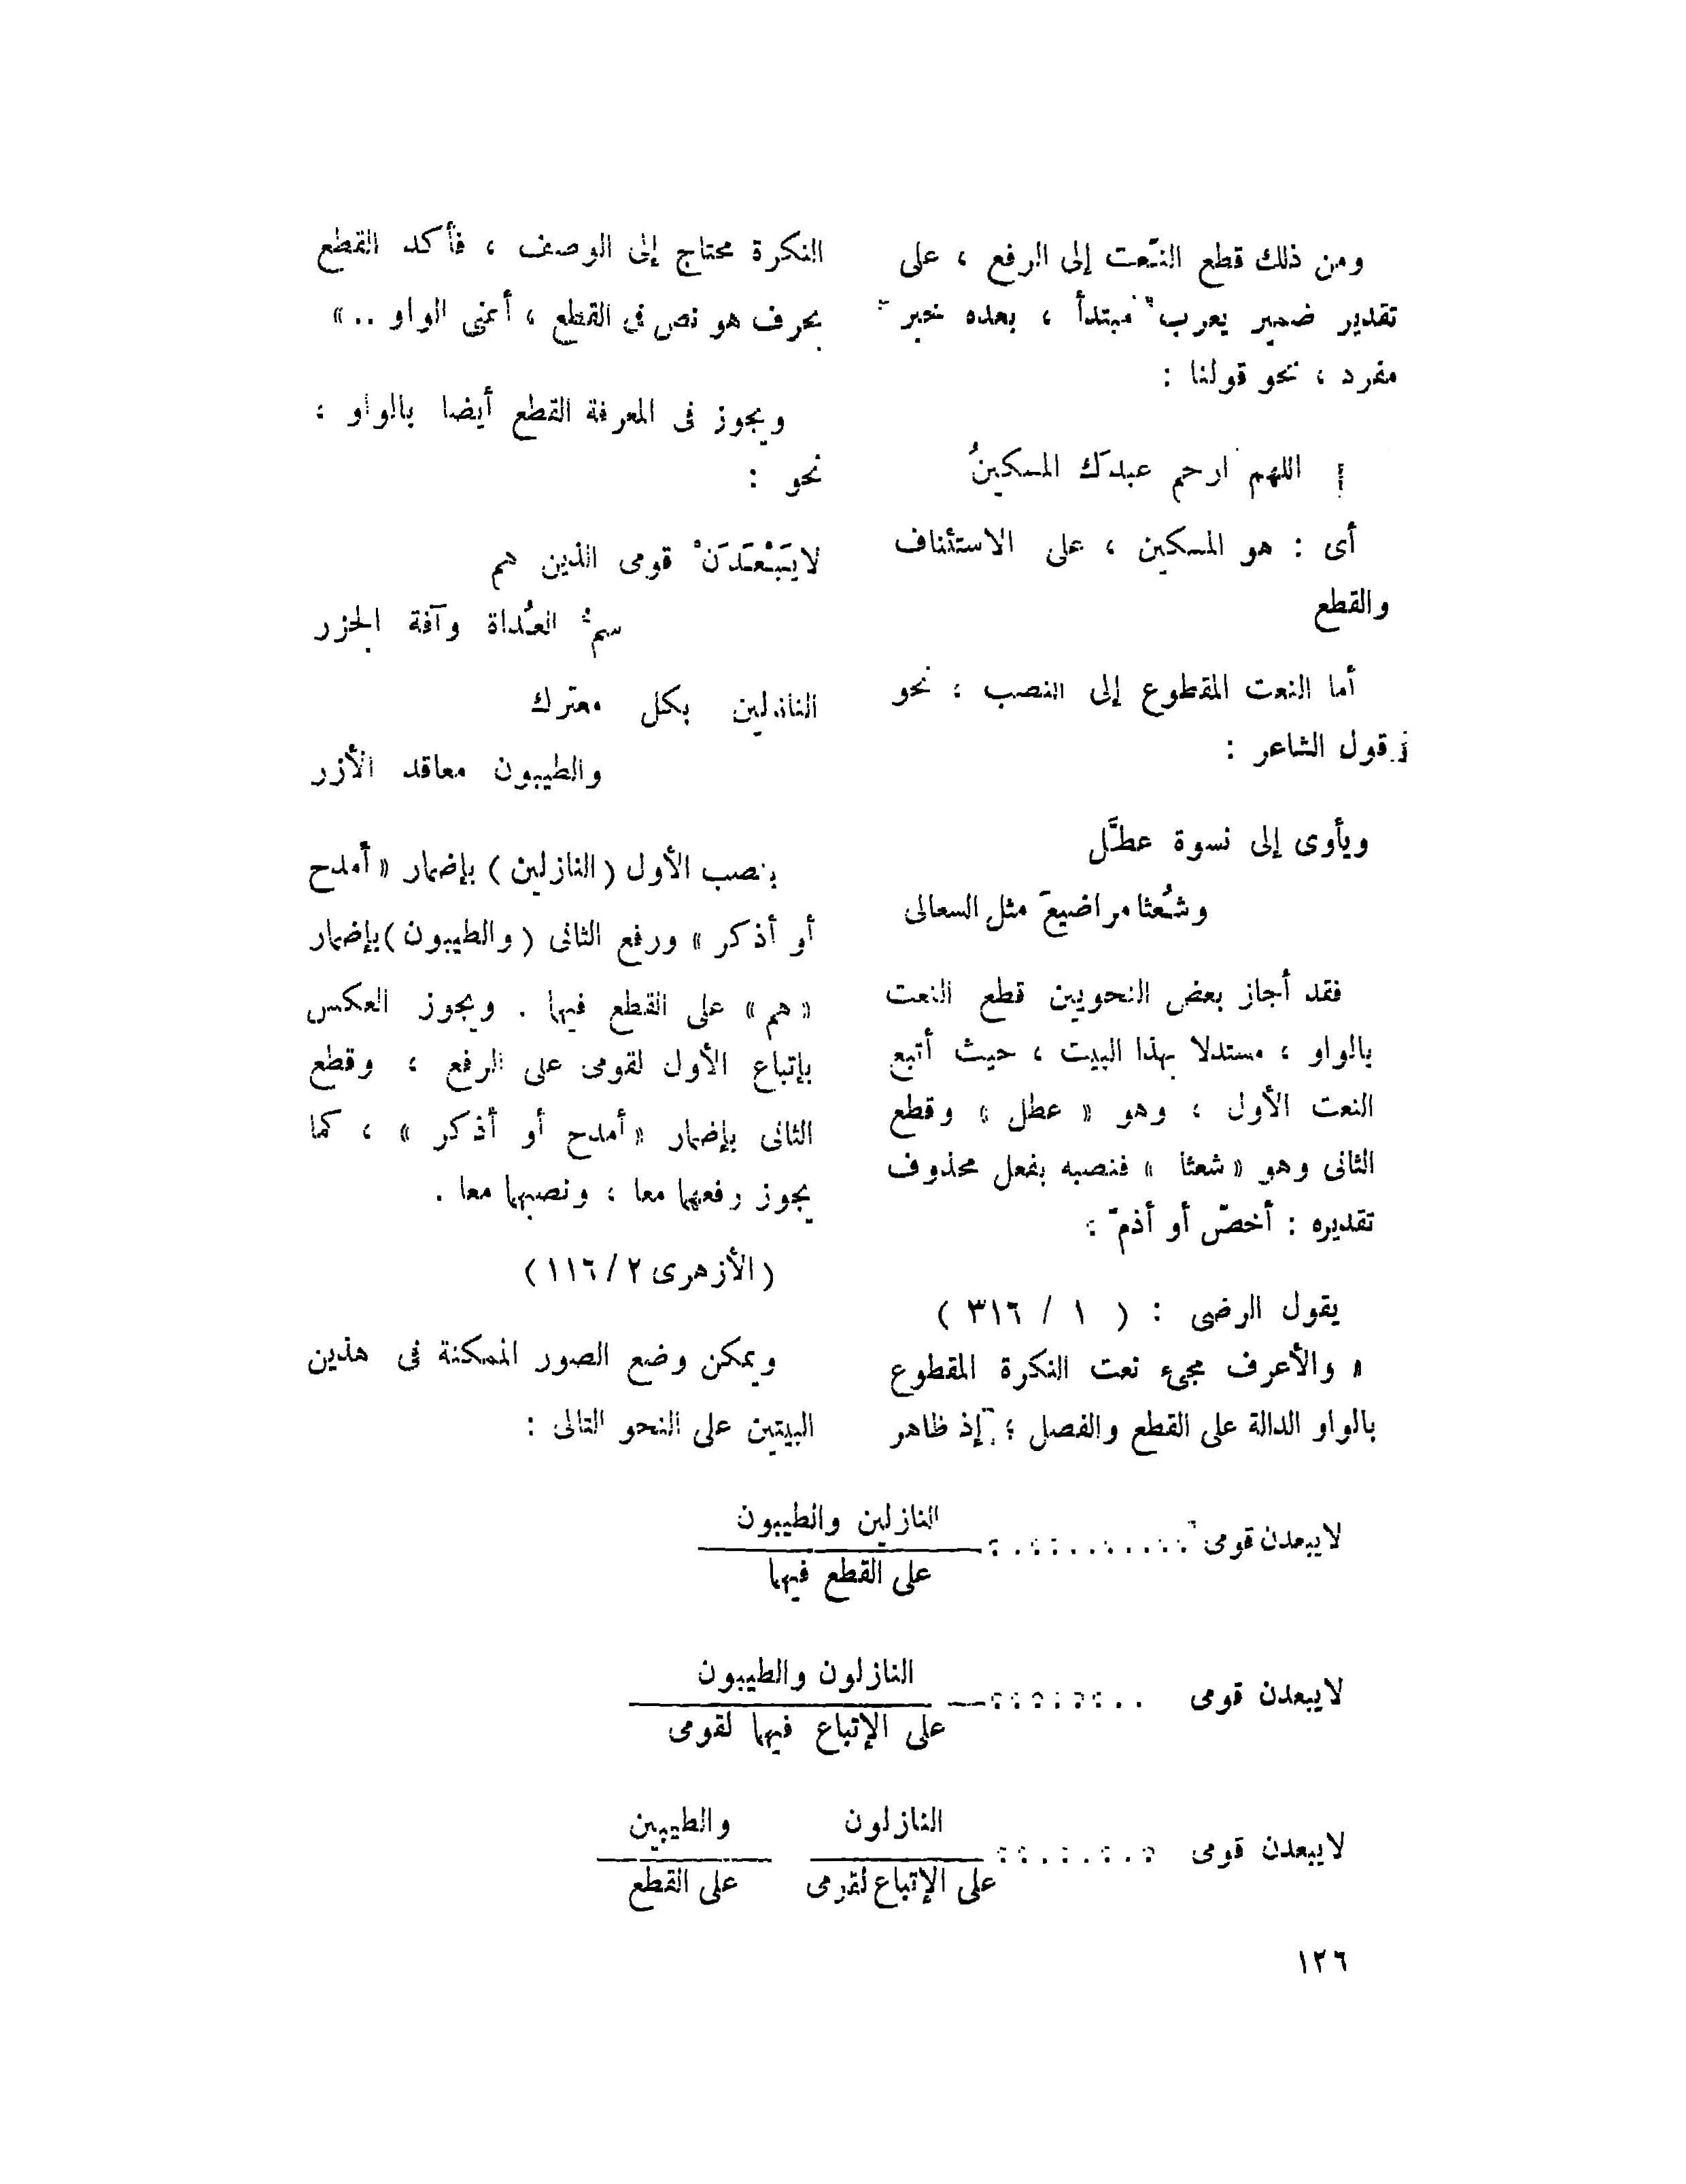 ومن ذلك قطع النّعت إلى الرفع ، على
تقدير ضمير يعرب مبتدأ ، بعده خبر
مفرد ، نحو قولنا :
اللهم ارحم عبدك المسكينُ
أى : هو المسكين ، على الاستئناف
والقطع
أما النعت المقطوع إلى النصب ، نحو
قول الشاعر :
ويأوى إلى نسوة عطَّل
وشُعثا مراضيعَ مثل السعالى
فقد أجاز بعض النحويين قطع النعت
بالواو ، مستدلا بهذا البيت ، حيث أتبع
النعت الأول ، وهو « عطل » وقطع
الثانى وهو « شعثا » فنصبه بفعل محذوف
تقديره : أخصّ أو أذمّ :
يقول الرضى : ( ١ / ٣١٦ )
« والأعرف مجىء نعت النكرة المقطوع
بالواو الدالة على القطع والفصل ؛ إذ ظاهر
النكرة محتاج إلى الوصف ، فأكد القطع
بحرف هو نص فى القطع ، أعنى الواو .. »
ويجوز فى المعرفة القطع أيضا بالواو ،
نحو :
لايَبْعَدَنْ قومى الذين هم
سمُّ العُداة وآفة الجزر
النازلين بكل معترك
والطيبون معاقد الأزر
بنصب الأول ( النازلين ) بإضمار « أمدح
أو أذكر » ورفع الثانى ( والطيبون ) بإضمار
« هم » على القطع فيهما . ويجوز العكس
بإتباع الأول لقومى على الرفع ، وقطع
الثانى بإضمار « أمدح أو أذكر » ، كما
يجوز رفعهما معا ، ونصبهما معا .
( الأزهرى ٢ / ١١٦ )
ويمكن وضع الصور الممكنة فى هذين
البيتين على النحو التالى :
لايبعدن قومى .......... النازلين والطيبون
على القطع فيهما
لايبعدن قومى .......... النازلون والطيبون
على الإتباع فيهما لقومى
لايبعدن قومى .......... النازلون والطيبين
على الإتباع لقومى على القطع
١٢٦